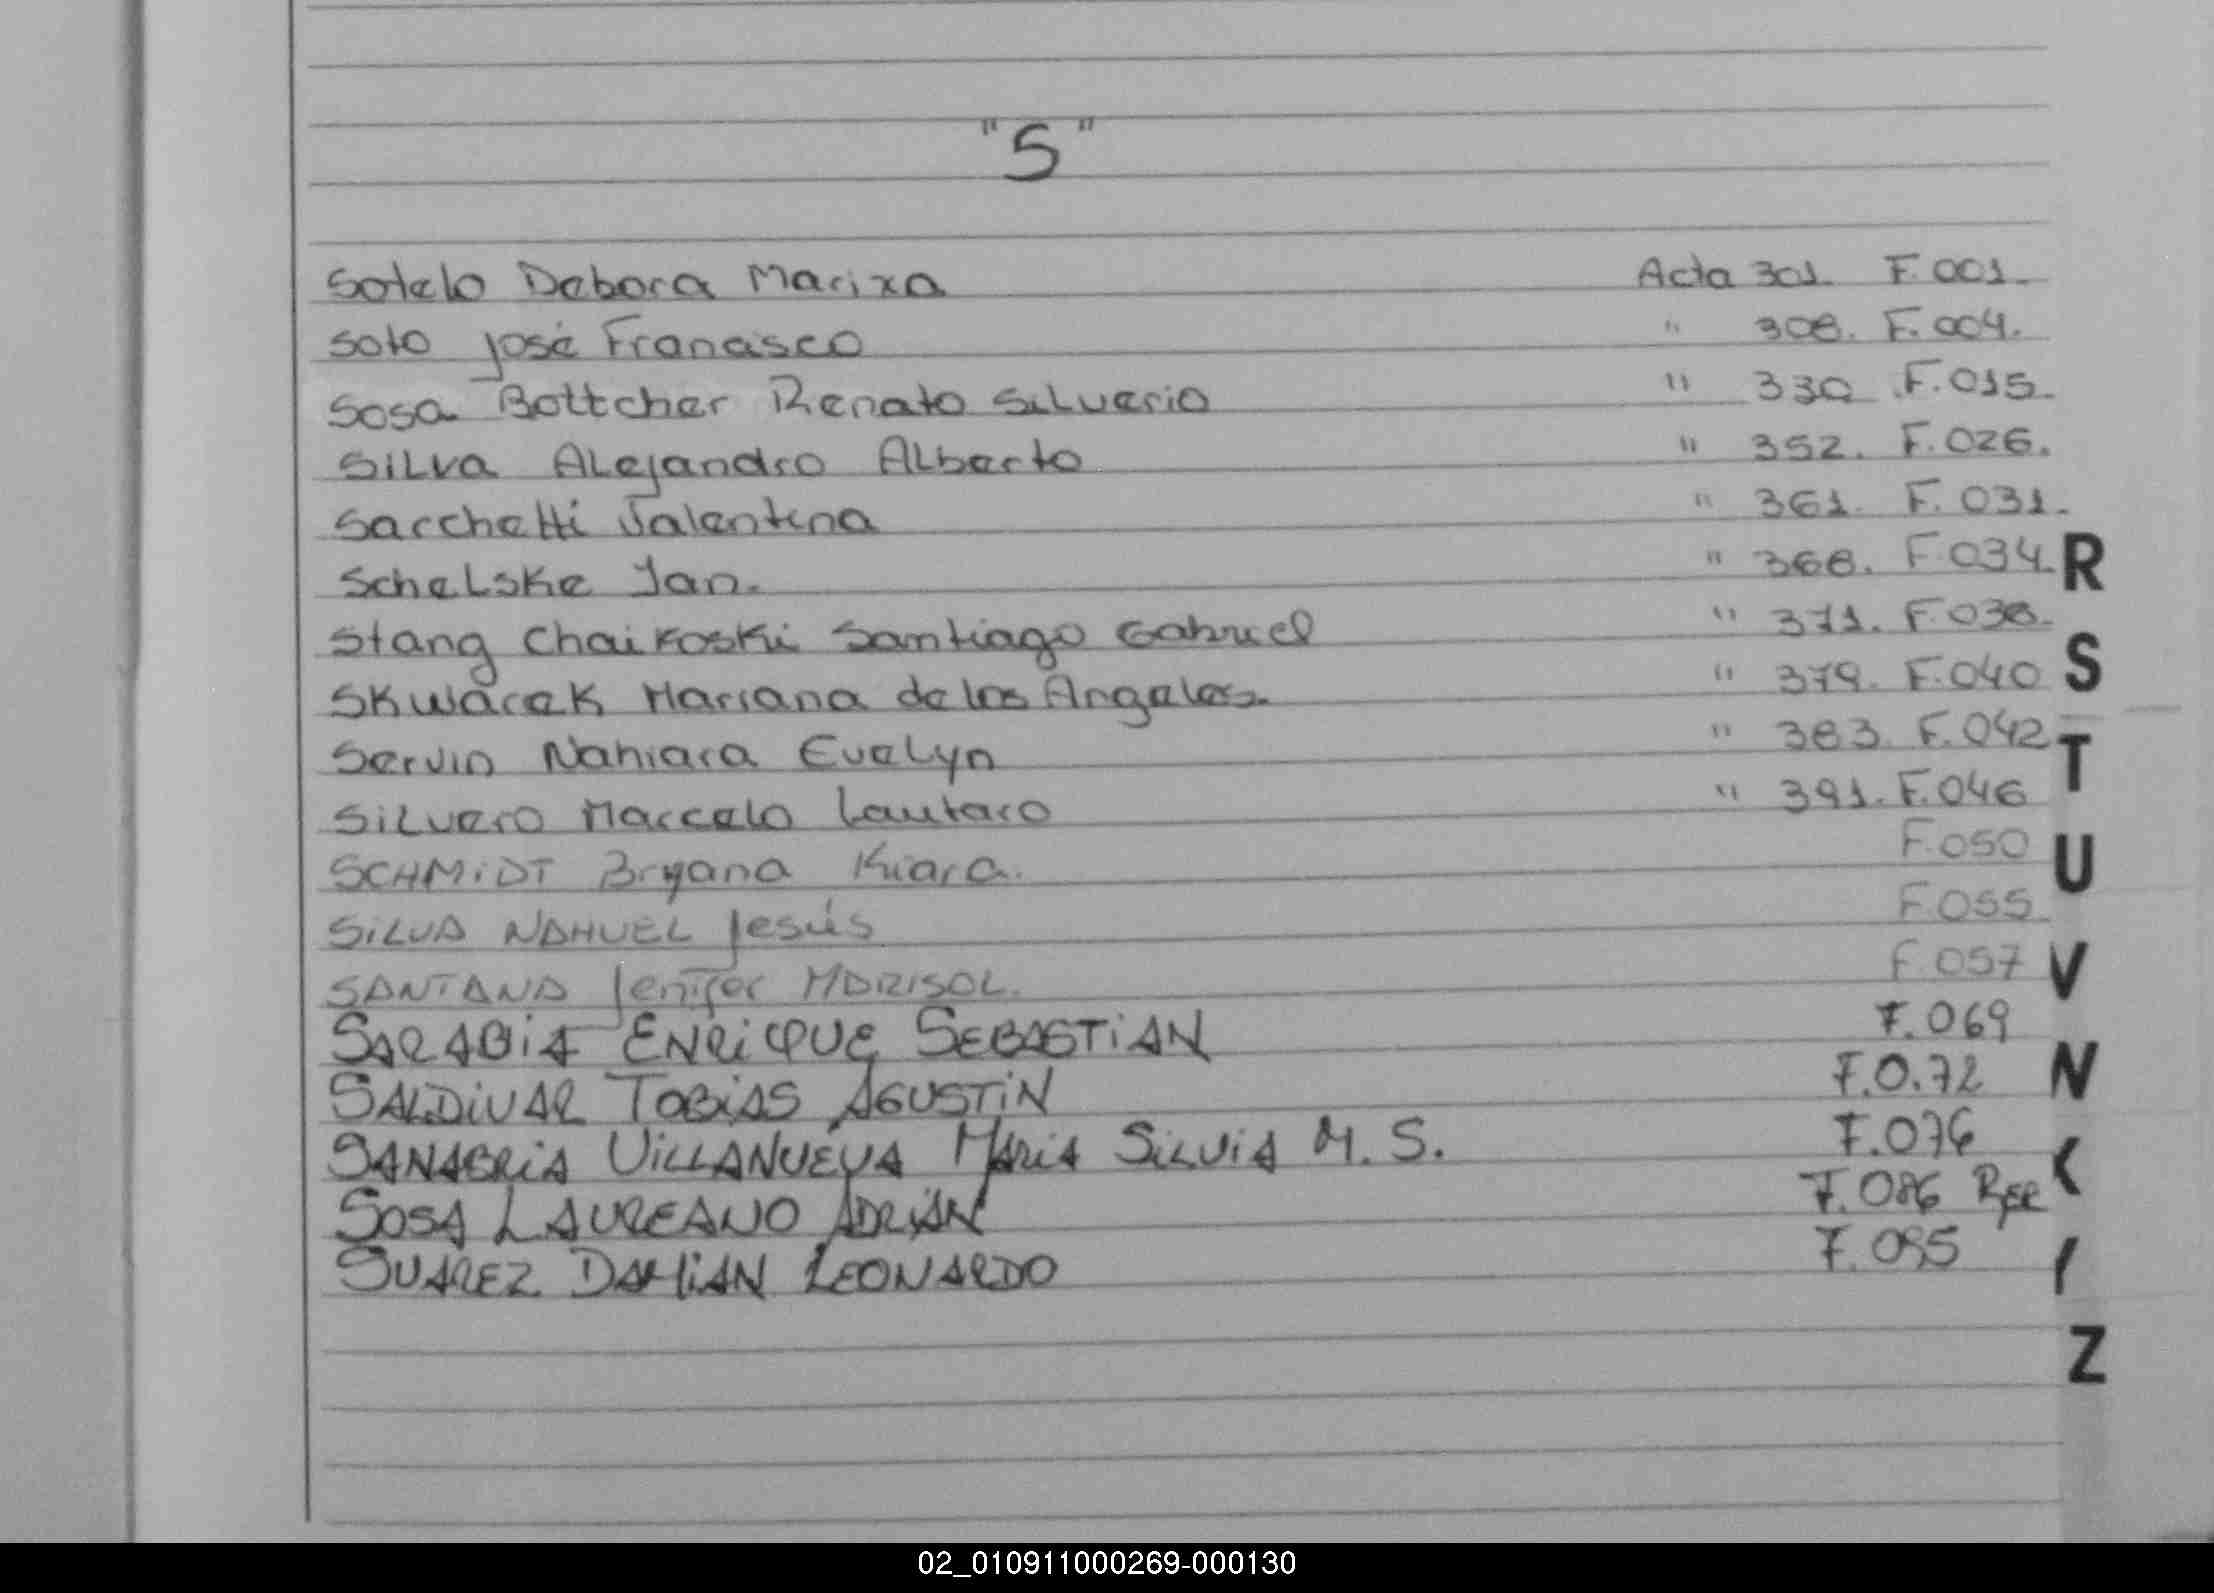 "S"
Sotelo Debora Marixa Acta 301. F.001.
Soto José Franasco " 308. F.004.
Sosa Bottcher Renato Silverio " 330 F.015.
Silva Alejandro Alberto " 352. F.026.
Sacchetti Valentina " 361. F.031.
Schelske Ian. " 368. F.034
Stang Chaikoski Santiago Gabriel " 371. F.038.
Skwarek Mariana de los Angeles. " 379. F.040
Servin Nahiara Evelyn " 383. F.042
Silvero Marcelo Lautaro " 391. F.046
SCHMiDT Bryana Kiara. F.050
SiLVA NAHUEL Jesús F.055
SANTANA Jenifer MARISOL. F.057
SARABiA ENRiQUE SEBASTiAN F.069
SALDiVAR TOBiAS AGUSTiN F.0.72
SANABRiA ViLLANUEVA MARiA SiLViA M. S. F.076
SOSA LAUREANO ADRiAN F.086
SUAREZ DAMiAN LEONARDO F.095
R
S
T
U
V
Z
02_010911000269-000130